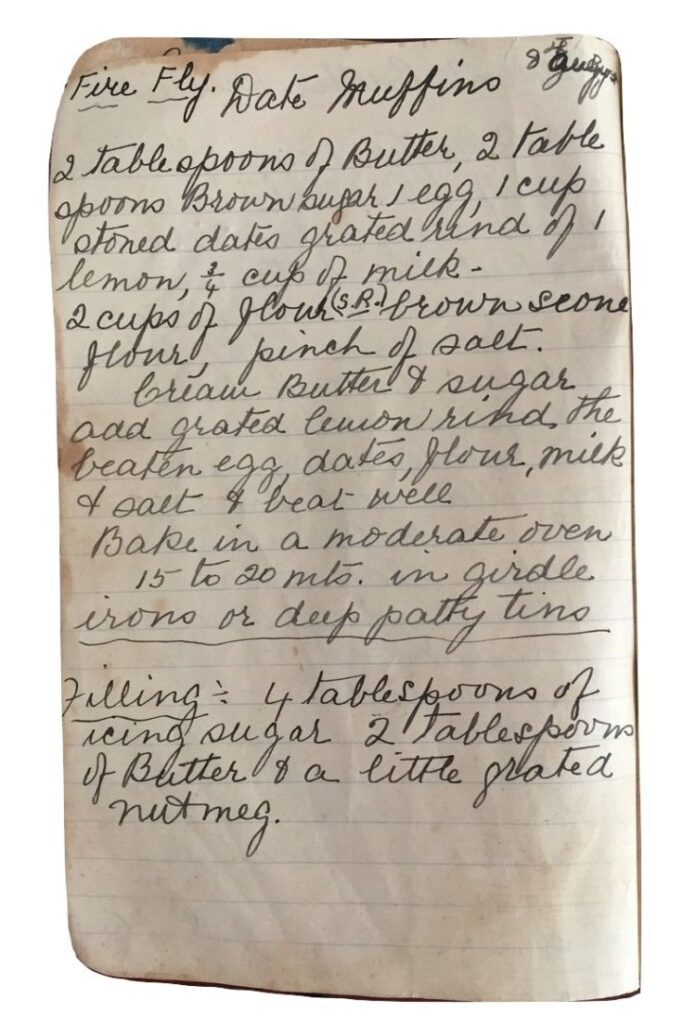 Fire Fly. Date Muffins
2 tablespoons of Butter, 2 table
spoons Brown sugar 1 egg, 1 cup
stoned dates grated rind of 1
lemon, ¾ cup of milk -
2 cups of flour (S.R.) brown scone
flour, pinch of salt.
Cream Butter & sugar
add grated lemon rind, the
beaten egg, dates, flour, milk
& salt & beat well
Bake in a moderate oven
15 to 20 mts. in girdle
irons or deep patty tins
Filling ÷ 4 tablespoons of
icing sugar 2 tablespoons
of Butter & a little grated
nutmeg.